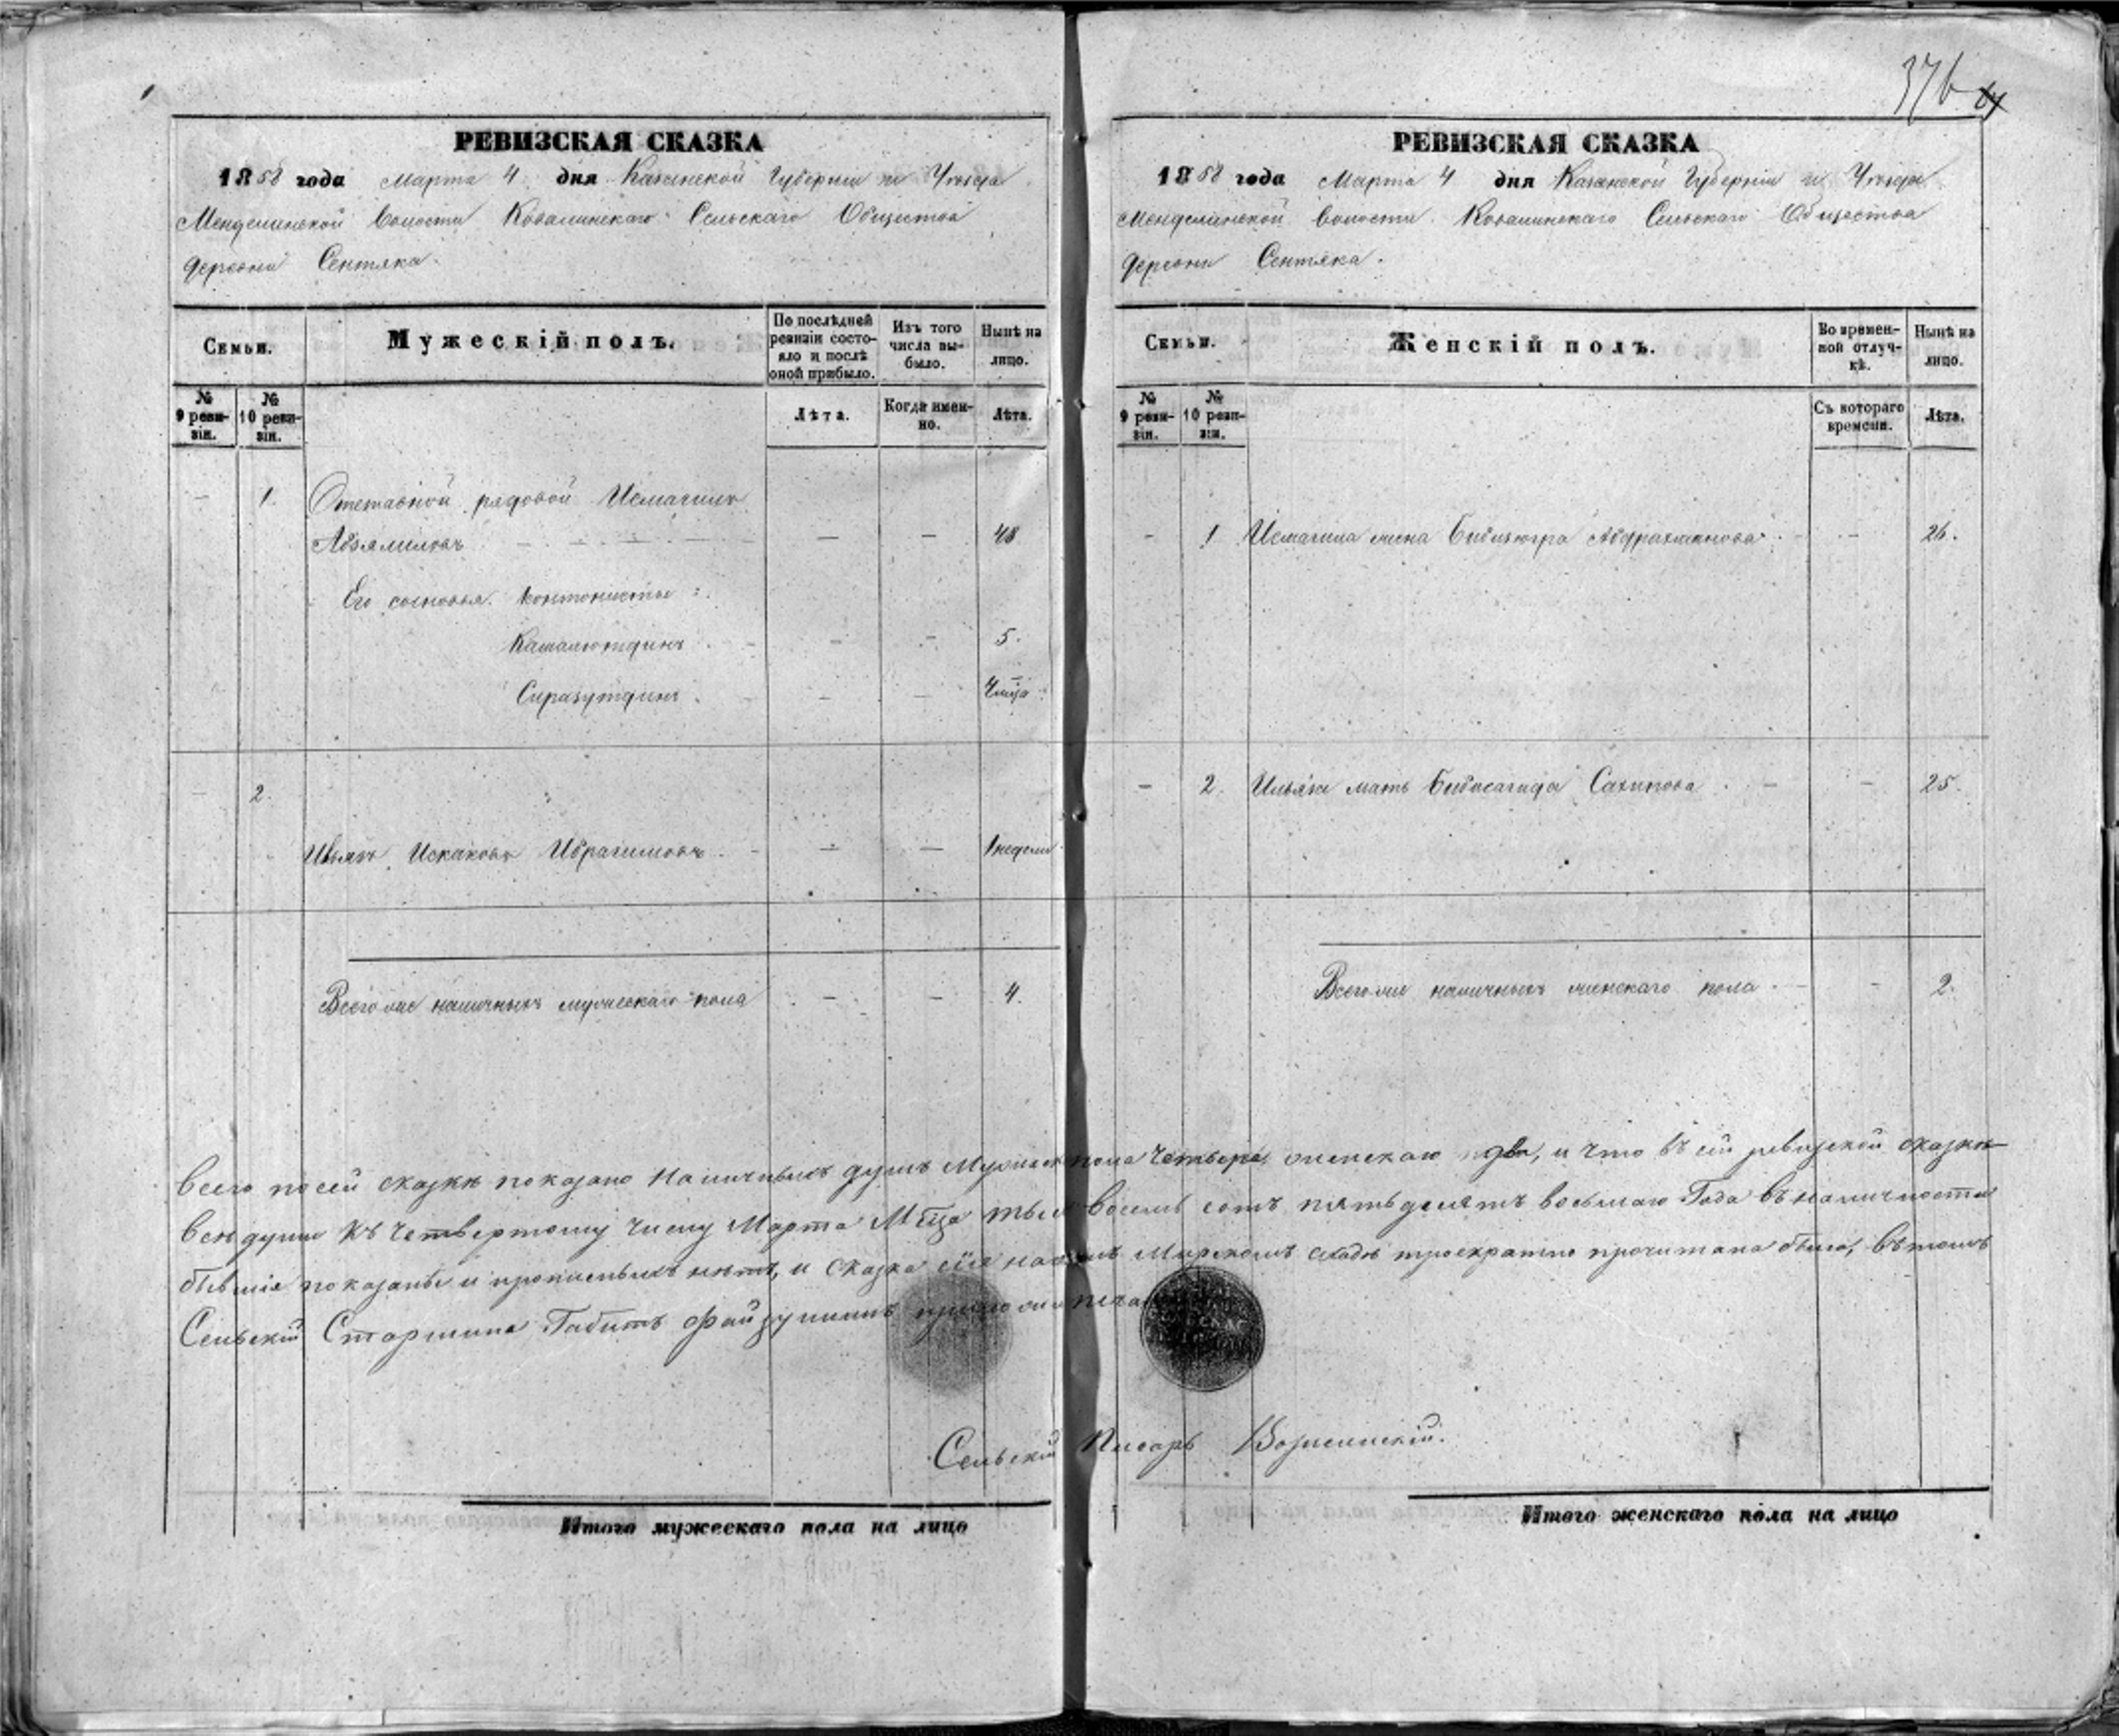 376 64
РЕВИЗСКАЯ СКАЗКА
1858 года Марта 4 дня Казанской Губернiи и Уѣзда
Менделинской Волости Ковалинскаго Сельскаго Общества
деревни Сентяка.
Семьи.
Мужескiй полъ.
По послѣдней ревизiи состояло и послѣ оной прибыло.
Изъ того числа выбыло.
Нынѣ на лицо.
№ 9 ревизiи.
№ 10 ревизiи.
Лѣта.
Когда именно.
Лѣта.
— 1. Отставной рядовой Исмагилъ
Абзялиловъ — — 48
Его сыновья кантонисты:
Камалютдинъ — — 5.
Сиразутдинъ — — 4 мца
— 2.
Ильякъ Искаковъ Ибрагимовъ — — 1 недели
Всего мс наличныхъ мужескаго пола — — 4.
РЕВИЗСКАЯ СКАЗКА
1858 года Марта 4 дня Казанской Губернiи и Уѣзда
Менделинской Волости Ковалинскаго Сельскаго Общества
деревни Сентяка.
Семьи.
Женскiй полъ.
Во временной отлучкѣ.
Нынѣ на лицо.
№ 9 ревизiи.
№ 10 ревизiи.
Съ котораго времени.
Лѣта.
— 1 Исмагила жена Бибизюгра Абдрахманова — 26.
— 2. Ильяка мать Бибисагида Сахипова — 25.
Всего наличныхъ женскаго пола — 2.
Всего по сей сказкѣ показано наличныхъ душъ Мужеск пола четыре, женскаго два, и что въ сей ревизской сказкѣ
все души къ четвертому числу Марта Мца тысяч восемь сотъ пятьдесятъ восьмаго Года въ наличности
бывшiе показаны и прописныхъ нѣтъ, и сказка сiя на Мирскомъ сходѣ троекратно прочитана была, въ томъ
Сельскiй Старшина Габитъ Файзуллинъ приложилъ печать
Сельскiй Писарь
Итого мужескаго пола на лицо
Итого женскаго пола на лицо